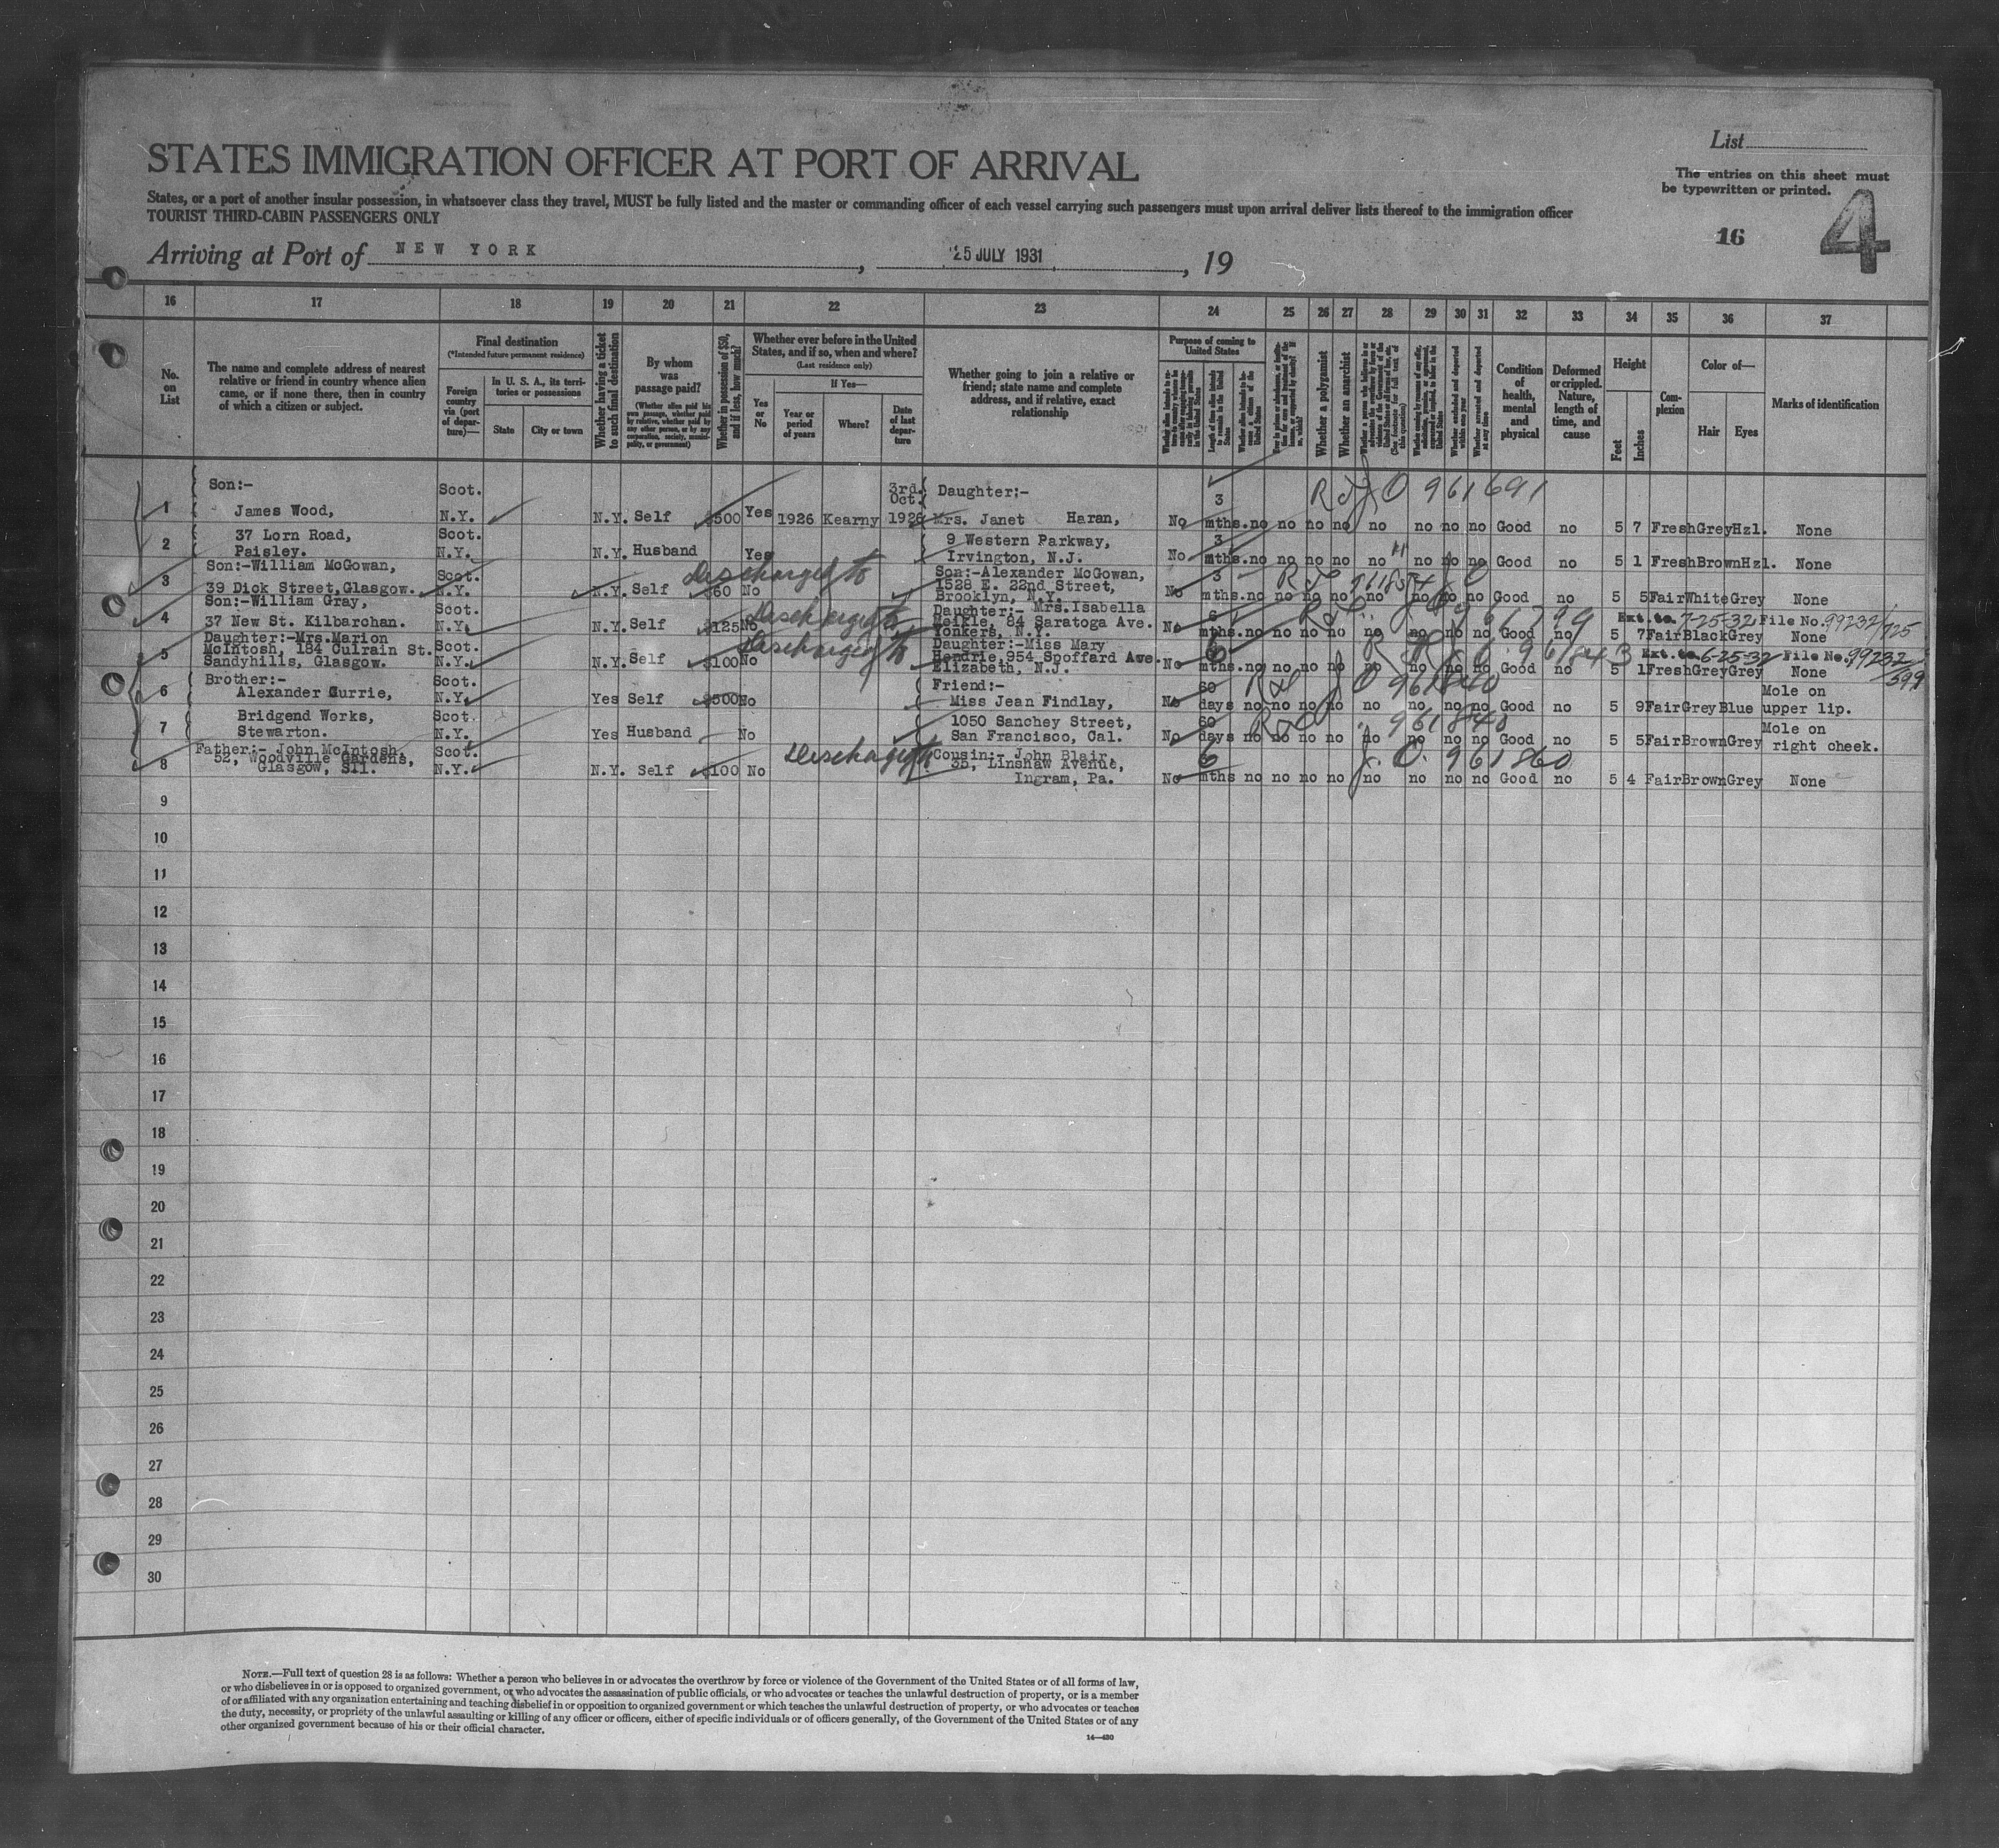 List
The entries on this sheet must
be typewritten or printed.
4
16
STATES IMMIGRATION OFFICER AT PORT OF ARRIVAL
States, or a port of another insular possession, in whatsoever class they travel, MUST be fully listed and the master or commanding officer of each vessel carrying such passengers must upon arrival deliver lists thereof to the immigration officer
TOURIST THIRD-CABIN PASSENGERS ONLY
Arriving at Port of NEW YORK, 25 JULY 1931, 19
16 17 18 19 20 21 22 23 24 25 26 27 28 29 30 31 32 33 34 35 36 37
No. on List
The name and complete address of nearest
relative or friend in country whence alien
came, or if none there, then in country
of which a citizen or subject.
Final destination
(*Intended future permanent residence)
Foreign country via (port of departure)—
In U. S. A., its territories or possessions
State
City or town
Whether having a ticket to such final destination
By whom was passage paid?
(Whether alien paid his own passage, whether paid by relative, whether paid by any other person, or by any corporation, society, municipality, or government)
Whether in possession of $50, and if less, how much?
Whether ever before in the United
States, and if so, when and where?
(Last residence only)
Yes or No
If Yes—
Year or period of years
Where?
Date of last departure
Whether going to join a relative or
friend; state name and complete
address, and if relative, exact
relationship
Purpose of coming to United States
Length of time alien intends to remain in the United States
Whether a polygamist
Whether an anarchist
Condition of health, mental and physical
Deformed or crippled. Nature, length of time, and cause
Height
Feet
Inches
Complexion
Color of—
Hair
Eyes
Marks of identification
1 Son:- James Wood, Scot. N.Y. N.Y. Self $500 Yes 1926 Kearny 3rd. Oct. 1926 Daughter:- Mrs. Janet Haran, No 3 mths. no no no no no no no no Good no 5 7 Fresh Grey Hzl. None
R J O 961691
2 37 Lorn Road, Paisley. Scot. N.Y. N.Y. Husband Yes 9 Western Parkway, Irvington, N.J. No 3 mths. no no no no no no no no Good no 5 1 Fresh Brown Hzl. None
3 Son:-William McGowan, 39 Dick Street, Glasgow. Scot. N.Y. N.Y. Self $60 No Son:-Alexander McGowan, 1528 E. 22nd Street, Brooklyn, N.Y. No 3 mths. no no no no no no no no Good no 5 5 Fair White Grey None
Discharged to
4 Son:-William Gray, 37 New St. Kilbarchan. Scot. N.Y. N.Y. Self $125 No Daughter:- Mrs. Isabella Meikle, 84 Saratoga Ave. Yonkers, N.Y. No 6 mths. no no no no no no no no Good no 5 7 Fair Black Grey None
Discharged to
961799
Ext. to 7-25-32 File No. 99232/725
5 Daughter:-Mrs. Marion McIntosh, 184 Culrain St. Sandyhills, Glasgow. Scot. N.Y. N.Y. Self $100 No Daughter:-Miss Mary Hendrie, 954 Spoffard Ave. Elizabeth, N.J. No 6 mths. no no no no no no no no Good no 5 1 Fresh Grey Grey None
Discharged to
961843
Ext. to 6-25-32 File No. 99232/599
6 Brother:- Alexander Currie, Scot. N.Y. Yes Self $500 No Friend:- Miss Jean Findlay, No 60 days no no no no no no no no Good no 5 9 Fair Grey Blue Mole on upper lip.
J O 961840
7 Bridgend Works, Stewarton. Scot. N.Y. Yes Husband No 1050 Sanchey Street, San Francisco, Cal. No 60 days no no no no no no no no Good no 5 5 Fair Brown Grey Mole on right cheek.
961840
8 Father:- John McIntosh, 52, Woodville Gardens, Glasgow, S11. Scot. N.Y. N.Y. Self $100 No Cousin:- John Blair, 35, Linshaw Avenue, Ingram, Pa. No 6 mths no no no no no no no no Good no 5 4 Fair Brown Grey None
Discharged to
J. O. 961860
9
10
11
12
13
14
15
16
17
18
19
20
21
22
23
24
25
26
27
28
29
30
NOTE.—Full text of question 28 is as follows: Whether a person who believes in or advocates the overthrow by force or violence of the Government of the United States or of all forms of law,
or who disbelieves in or is opposed to organized government, or who advocates the assassination of public officials, or who advocates or teaches the unlawful destruction of property, or is a member
of or affiliated with any organization entertaining and teaching disbelief in or opposition to organized government or which teaches the unlawful destruction of property, or who advocates or teaches
the duty, necessity, or propriety of the unlawful assaulting or killing of any officer or officers, either of specific individuals or of officers generally, of the Government of the United States or of any
other organized government because of his or their official character.
14—430